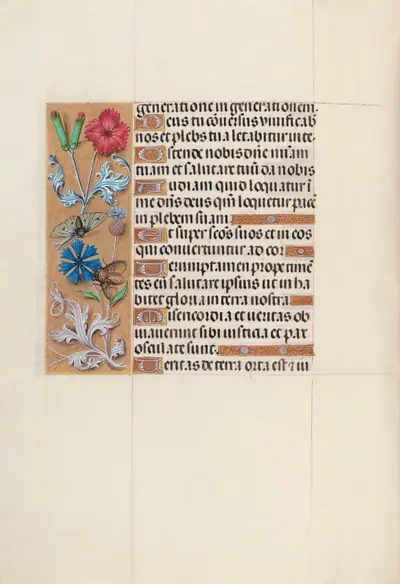 generatione in generationem.
Deus tu conversus vivificab
nos et plebs tua letabitur in te.
Ostende nobis dñe miam
tuam et salutare tuū da nobis
Audiam quid loquatur ī
me dñs deus qm̄ loquetur pacē
in plebem suam.
Et super scōs suos et in eos
qui convertuntur ad cor
Verumptamen prope timē
tes eū salutare ipsius ut in ha
bitet gloria in terra nostra
Misericordia et veritas ob
viaverunt sibi iustitia et pax
osculate sunt.
Veritas de terra orta est et iu